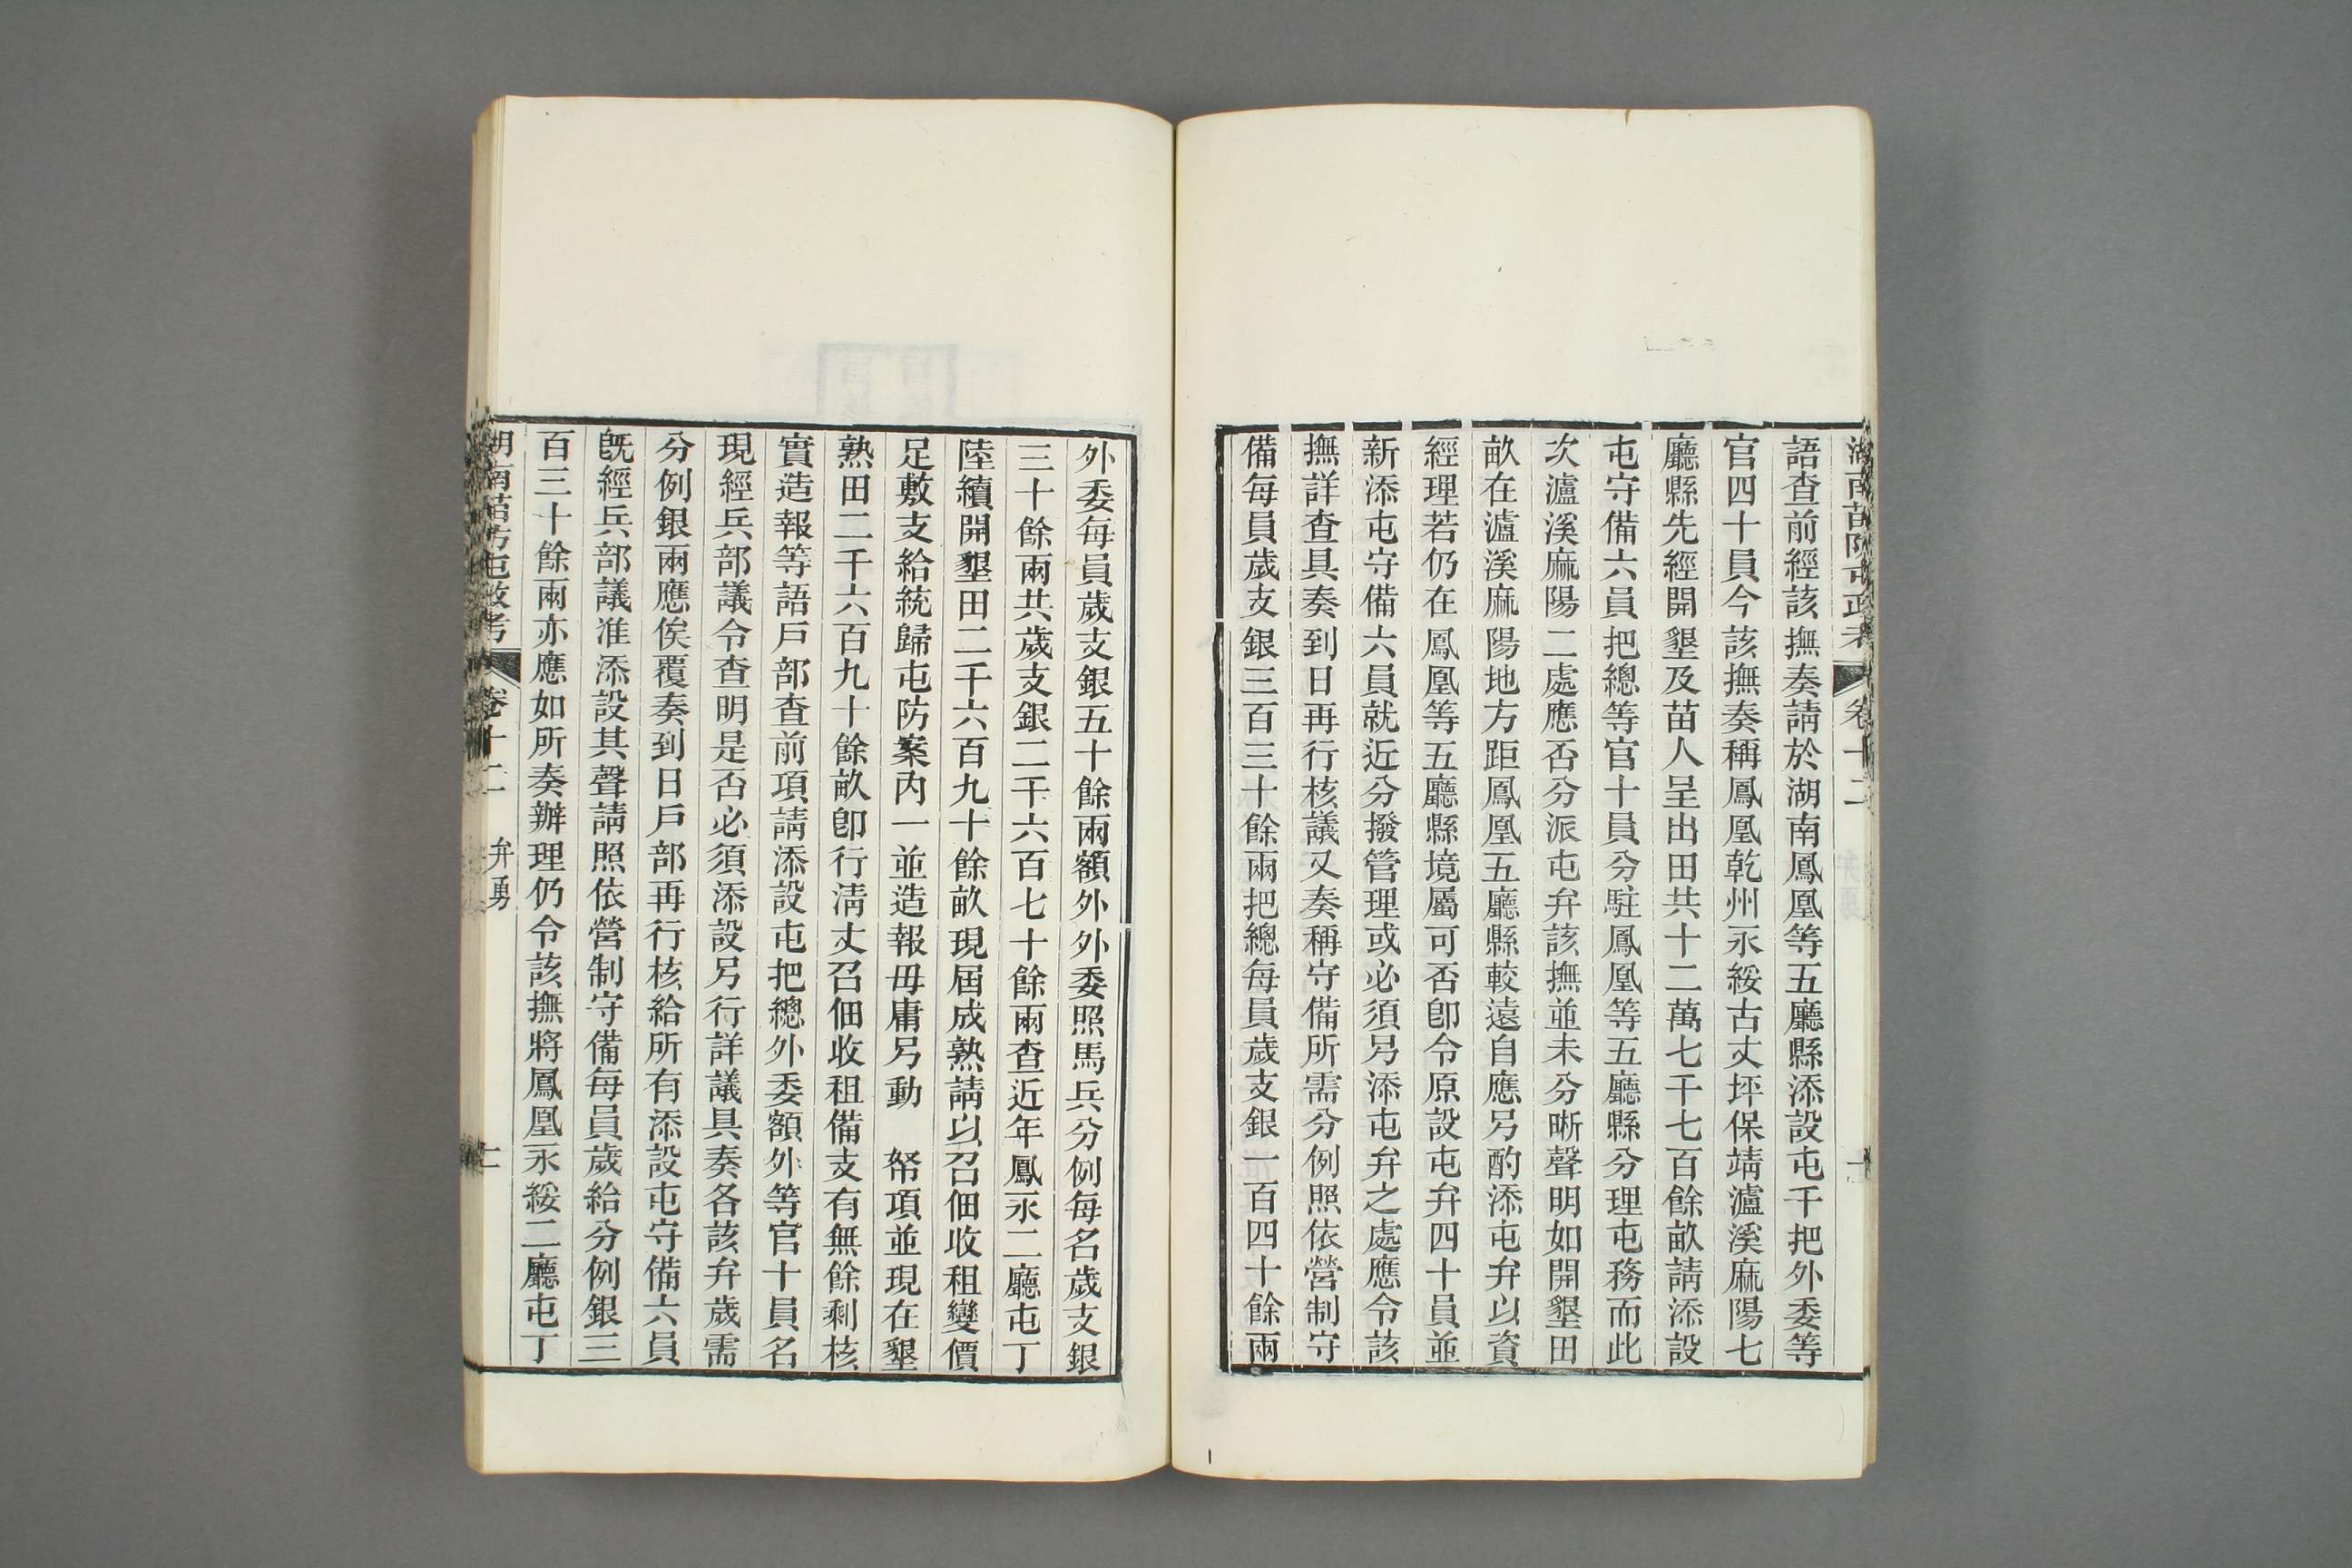 湖南苗防屯政考 卷十二 一
語查前經該撫奏請於湖南鳳凰等五廳縣添設屯千把外委等
官四十員今該撫奏稱鳳凰乾州永綏古丈坪保靖瀘溪麻陽七
廳縣先經開墾及苗人呈出田共十二萬七千七百餘畝請添設
屯守備六員把總等官十員分駐鳳凰等五廳縣分理屯務而此
次瀘溪麻陽二處應否分派屯弁該撫並未分晰聲明如開墾田
畝在瀘溪麻陽地方距鳳凰五廳縣較遠自應另酌添屯弁以資
經理若仍在鳳凰等五廳縣境屬可否卽令原設屯弁四十員並
新添屯守備六員就近分撥管理或必須另添屯弁之處應令該
撫詳查具奏到日再行核議又奏稱守備所需分例照依營制守
備每員歲支銀三百三十餘兩把總每員歲支銀一百四十餘兩
外委每員歲支銀五十餘兩額外外委照馬兵分例每名歲支銀
三十餘兩共歲支銀二千六百七十餘兩查近年鳳永二廳屯丁
陸續開墾田二千六百九十餘畝現屆成熟請以召佃收租變價
足敷支給統歸屯防案內一並造報毋庸另動 帑項並現在墾
熟田二千六百九十餘畝卽行淸丈召佃收租備支有無餘剩核
實造報等語戶部查前項請添設屯把總外委額外等官十員名
現經兵部議令查明是否必須添設另行詳議具奏各該弁歲需
分例銀兩應俟覆奏到日戶部再行核給所有添設屯守備六員
旣經兵部議准添設其聲請照依營制守備每員歲給分例銀三
百三十餘兩亦應如所奏辦理仍令該撫將鳳凰永綏二廳屯丁
湖南苗防屯政考 卷十二 弁勇 二